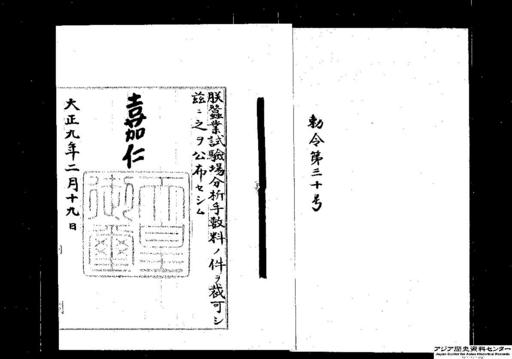 勅令第三十号
朕蚕業試験場分析手数料ノ件ヲ裁可シ
茲ニ之ヲ公布セシム
嘉仁
天皇御璽
大正九年二月十九日
アジア歴史資料センター
Japan Center for Asian Historical Records